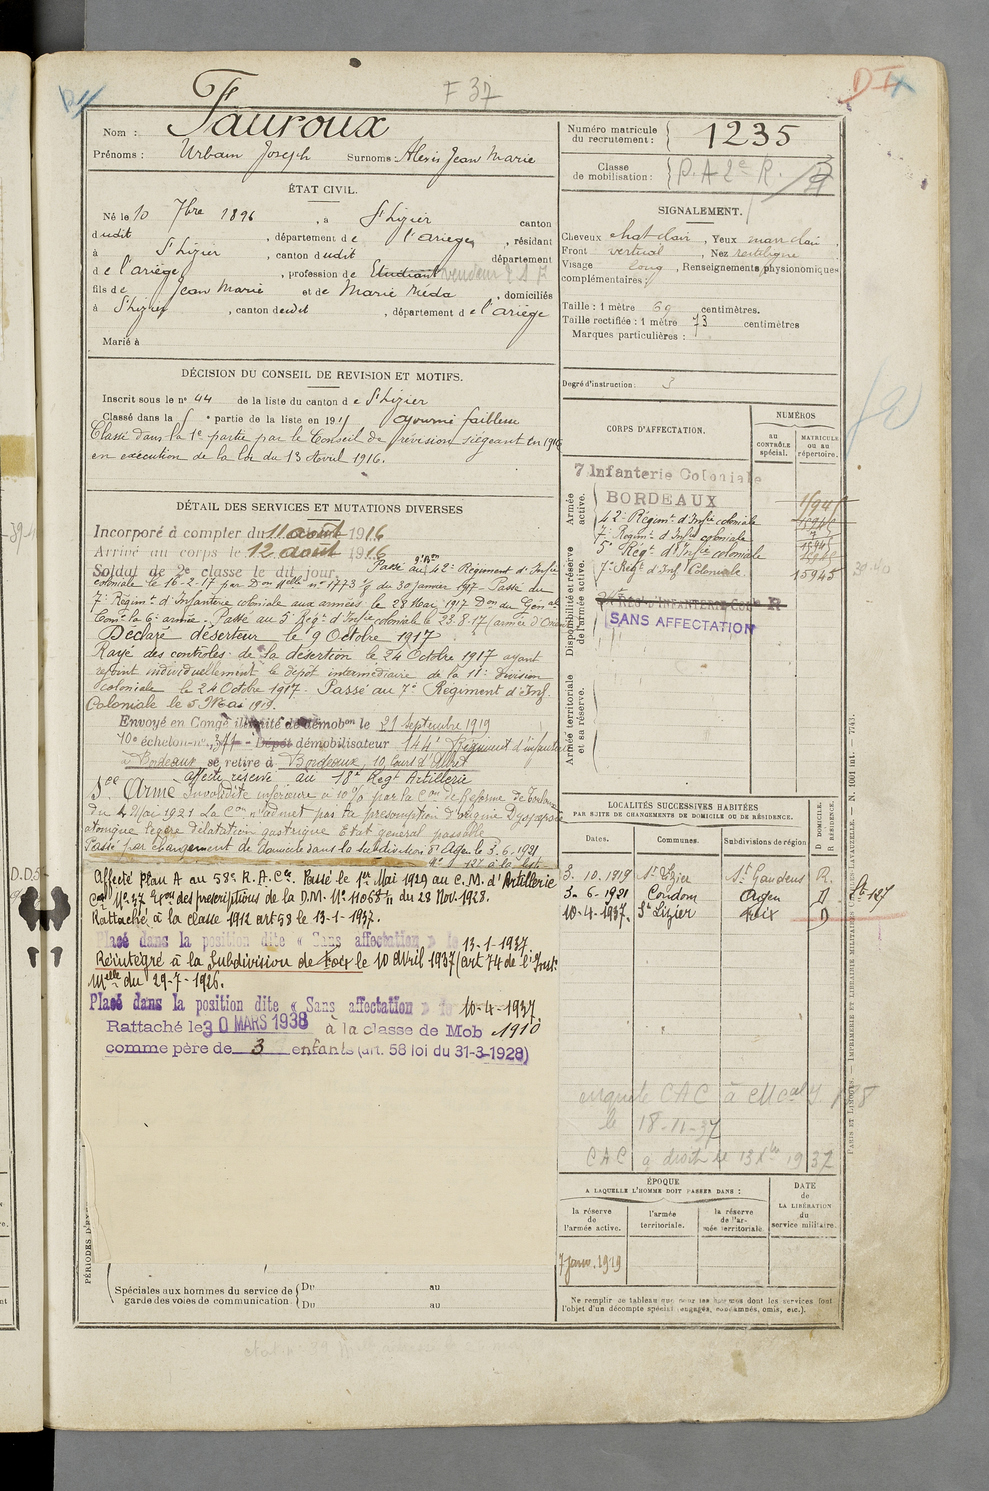 F 37
Nom : Fauroux
Prénoms : Urbain Joseph Surnoms : Alexis Jean Marie
Numéro matricule du recrutement : 1235
Classe de mobilisation : P. A 2e R.
ÉTAT CIVIL.
Né le 10 7bre 1896, à St Lizier canton
dudit, département de l'ariège, résidant
à St Lizier, canton dudit département
de l'ariège, profession de Etudiant
fils de Jean Marie et de Marie Méda, domiciliés
à St Lizier, canton dudit, département de l'ariège
Marié à
SIGNALEMENT.
Cheveux chat clair, Yeux marr clair,
Front vertical, Nez rectiligne
Visage long, Renseignements physionomiques
complémentaires :
Taille : 1 mètre 69 centimètres.
Taille rectifiée : 1 mètre 73 centimètres
Marques particulières :
Degré d'instruction : 3
DÉCISION DU CONSEIL DE REVISION ET MOTIFS.
Inscrit sous le n° 44 de la liste du canton de St Lizier
Classé dans la 5e partie de la liste en 1915 ajourné faiblesse
Classé dans la 1e partie par le Conseil de révision siégeant en 1916
en exécution de la loi du 13 Avril 1916.
DÉTAIL DES SERVICES ET MUTATIONS DIVERSES
Incorporé à compter du 11 août 1916
Arrivé au corps le 12 août 1916
Soldat de 2e classe le dit jour. Passé au 42e Régiment d'Infie
Coloniale le 16-2-17 par Don Melle n° 1773 du 30 janvier 1917 - Passé au
7e Régimt d'Infanterie coloniale aux armées le 28 Mai 1917 Don du Génal
Comt la 6e armée. Passé au 5e Régt d'Infie coloniale le 23.8.17 (armée d'Orient
Déclaré déserteur le 9 Octobre 1917
Rayé des contrôles de la désertion le 24 Octobre 1917 ayant
rejoint individuellement le dépôt intermédiaire de la 11e Division
coloniale le 24 Octobre 1917 - Passé au 7e Régiment d'Inf.
Coloniale le 5 Mai 1919.
Envoyé en Congé illimité de démobon le 21 septembre 1919
10e échelon-n° - Dépôt démobilisateur 144e Régiment d'infanterie
à Bordeaux se retire à Bordeaux, 10, Cours d'Albret
affecté réserve au 18e Regt Artillerie
Sce Armé Invalidité inférieure à 10% par la Con de Réforme de Toulouse
du 4 Mai 1921 La Con n'admet pas la présomption d'origine Dyspepsie
atonique légère dilatation gastrique Etat général passable
Passé par changement de domicile dans la subdivision d'Agen le 3.6.1921
N° 127 à la liste
Affecté Plan A au 58e R.A.Cne. Passé le 1er Mai 1929 au C.M. d'Artillerie
N° 37 des prescriptions de la D.M. N° 11068 du 28 Nov. 1928.
Rattaché à la classe 1912 art 58 le 13-1-1937.
Placé dans la position dite « Sans affectation » le 13-1-1937
Réintégré à la Subdivision de Foix le 10 avril 1937 (art 74 de l'Inst.
Melle du 29-7-1926.
Placé dans la position dite « Sans affectation » le 10-4-1937
Rattaché le 30 MARS 1938 à la classe de Mob 1910
comme père de 3 enfants (art. 58 loi du 31-3-1928)
CORPS D'AFFECTATION.
NUMÉROS
au CONTRÔLE spécial.
MATRICULE ou au répertoire.
Armée active.
7 Infanterie Coloniale
BORDEAUX
42e Régimt d'Infie coloniale
7e Régimt d'Infie coloniale
5e Régt d'Infie coloniale
7e Régt d'Inf. Coloniale 15945
Disponibilité et réserve de l'armée active.
SANS AFFECTATION
Armée territoriale et sa réserve.
LOCALITÉS SUCCESSIVES HABITÉES
PAR SUITE DE CHANGEMENTS DE DOMICILE OU DE RÉSIDENCE.
Dates. Communes. Subdivisions de région D DOMICILE. R RÉSIDENCE.
3. 10. 1919 St Lizier St Gaudens R.
3. 6 1921 Condom Agen D
10-4-1937. St Lizier Foix D
le 18-11-37
ÉPOQUE
A LAQUELLE L'HOMME DOIT PASSER DANS :
la réserve de l'armée active.
l'armée territoriale.
la réserve de l'armée territoriale.
DATE de LA LIBÉRATION du service militaire.
7 janv. 1919
Ne remplir ce tableau que pour les hommes dont les services font
l'objet d'un décompte spécial (engagés, condamnés, omis, etc.).
Spéciales aux hommes du service de garde des voies de communication.
Du au
Du au
PARIS ET LIMOGES. — IMPRIMERIE ET LIBRAIRIE MILITAIRES CHARLES-LAVAUZELLE. — N. 1001 int. — 7743.